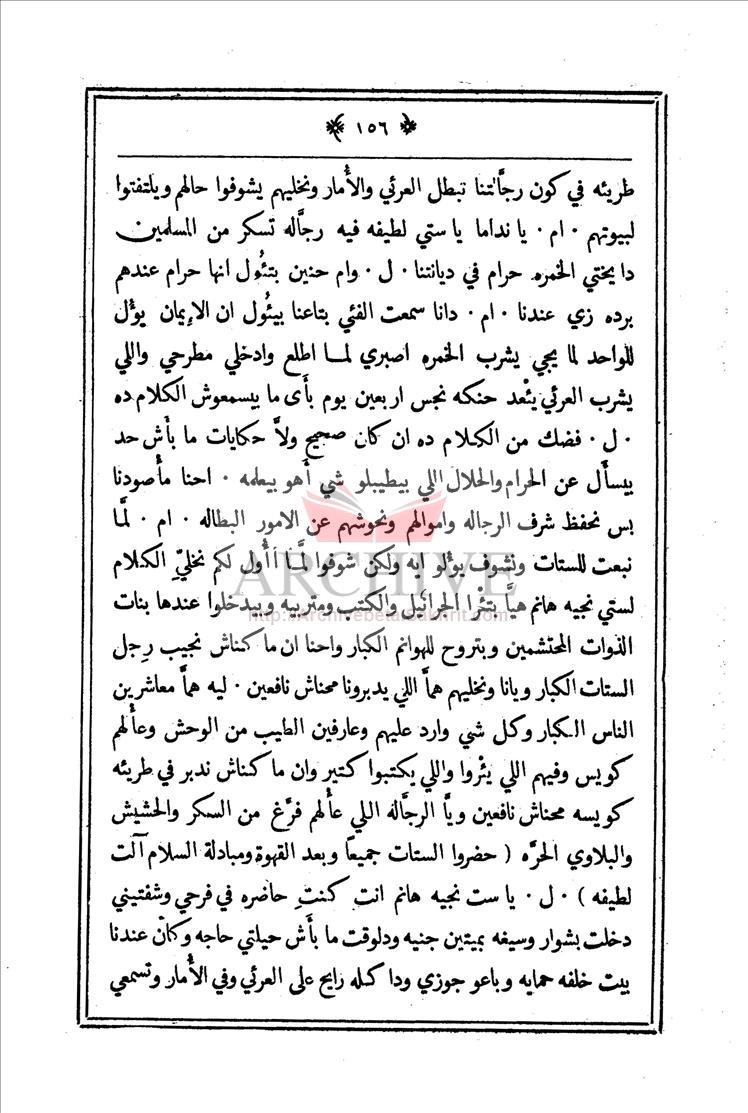 ﴿ ١٥٦ ﴾
طريئه في كون رجَّالتنا تبطل العرئي والأُمار ونخليهم يشوفوا حالهم ويلتفتوا
لبيوتهم ٠ ام ٠ يا نداما يا ستي لطيفه فيه رجَّاله تسكر من المسلمين
دا يختي الخمره حرام في ديانتنا ٠ ل ٠ وام حنين بتئُول انها حرام عندهم
برده زي عندنا ٠ ام ٠ دانا سمعت الفئي بتاعنا بيئُول ان الايمان يؤْل
للواحد لما يجي يشرب الخمره اصبري لمـا اطلع وادخلي مطرحي واللي
يشرب العرئي يئْعد حنكه نجس اربعين يوم بأَى ما بيسمعوش الكلام ده
٠ ل ٠ فضك من الكلام ده ان كان صحيح ولاَّ حكايات ما بأَش حد
يسأَل عن الحرام والحلال اللي بيطيبلو شي أَهو بيعلمه ٠ احنا مأْصودنا
بس نحفظ شرف الرجاله واموالهم ونحوشهم عن الامور البطاله ٠ ام ٠ لمَّا
نبعت للستات ونشوف يؤْلو ايه ولكن شوفوا لمَّا أَأُول لكم نخليّ الكلام
لستي نجيه هانم هيَّا بتئْرا الجرائيل والكتب ومتربيه وبيدخلوا عندها بنات
الذوات المحتشمين وبتروح للهوانم الكبار واحنا ان ما كناش نجيب رجل
الستات الكبار ويانا ونخليهم همَّا اللي يدبرونا محناش نافعين ٠ ليه همَّا معاشرين
الناس الكبار وكل شي وارد عليهم وعارفين الطيب من الوحش وعأْلهم
كويس وفيهم اللي يئْروا واللي يكتبوا كتير وان ما كناش ندبر في طريئه
كويسه محناش نافعين ويَّا الرجَّاله اللي عأْلهم فرَّغ من السكر والحشيش
والبلاوي الحرَّه ( حضروا الستات جميعًا وبعد القهوة ومبادلة السلام آلت
لطيفه ) ٠ ل ٠ يا ست نجيه هانم انتِ كنتِ حاضره في فرحي وشفتيني
دخلت بشوار وسيغه بميتين جنيه ودلوقت ما بأَش حيلتي حاجه وكان عندنا
بيت خلفه حمايه وباعو جوزي ودا كله رايح على العرئي وفي الأُمار وتسمعي
ARCHIVE